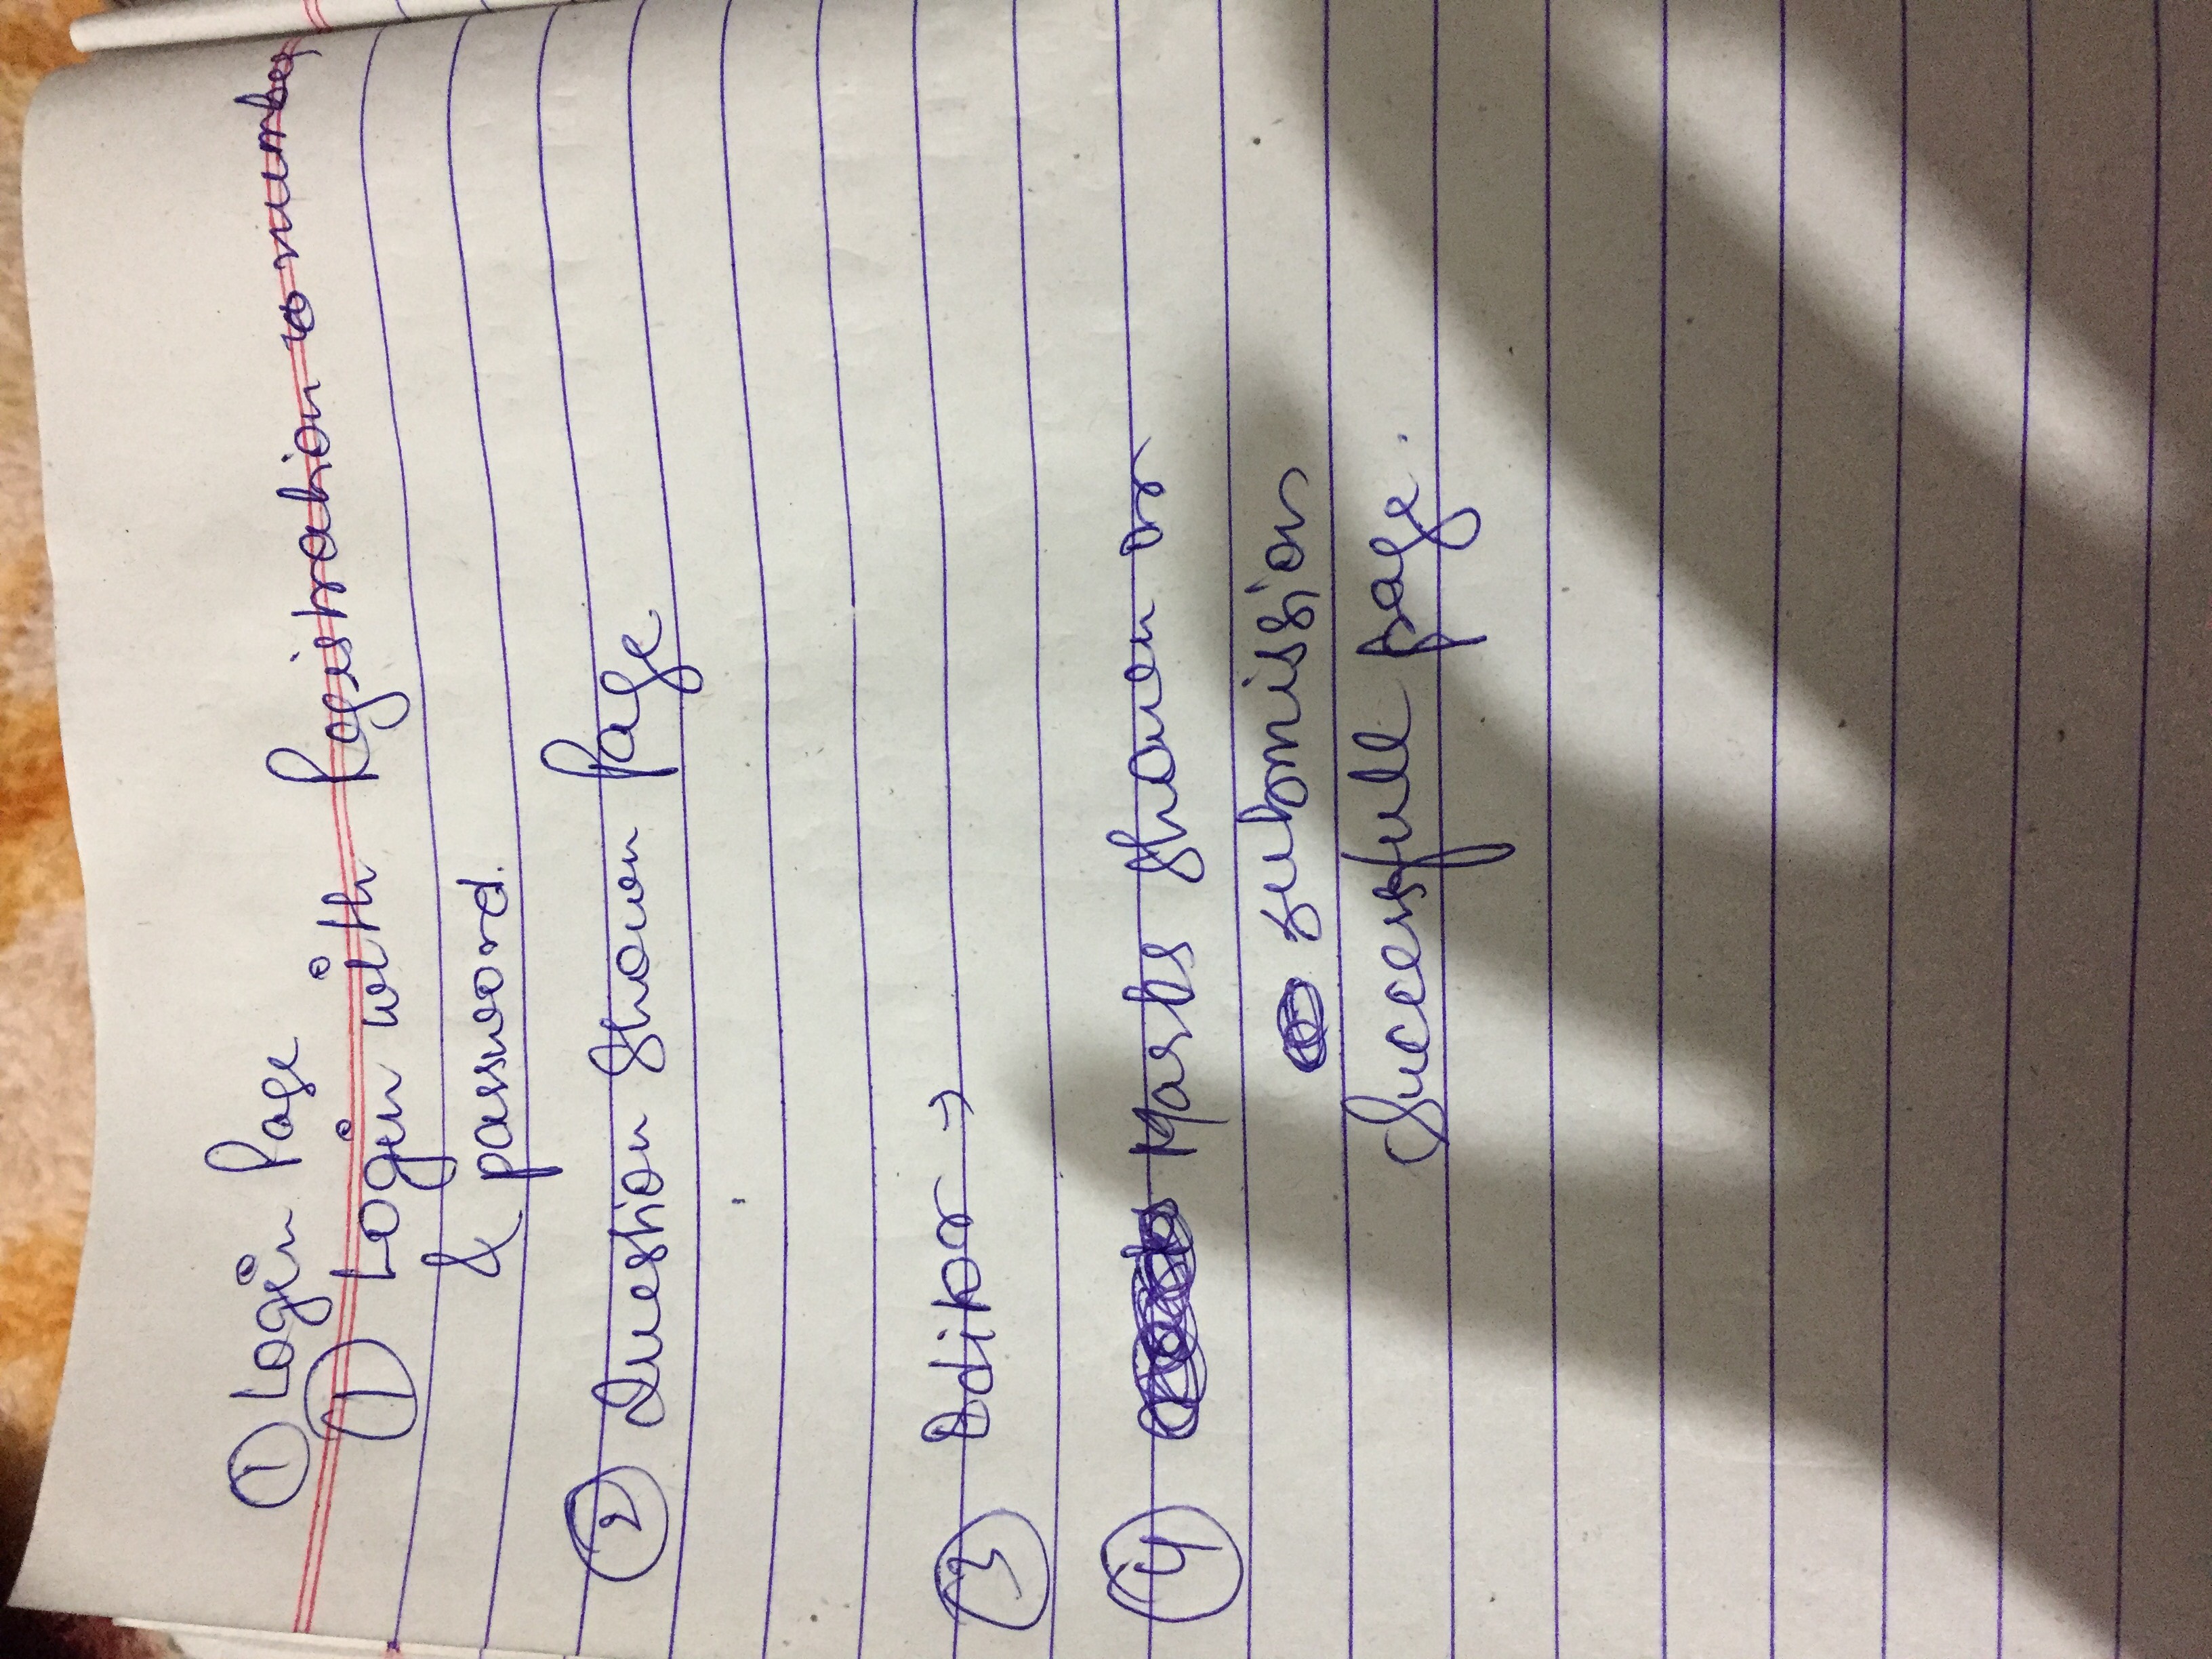 ① Login Page
① Login with Registration number
& password.
② Question Shown Page
③ Editor →
④ Marks Shown or
submission
Successfull page.